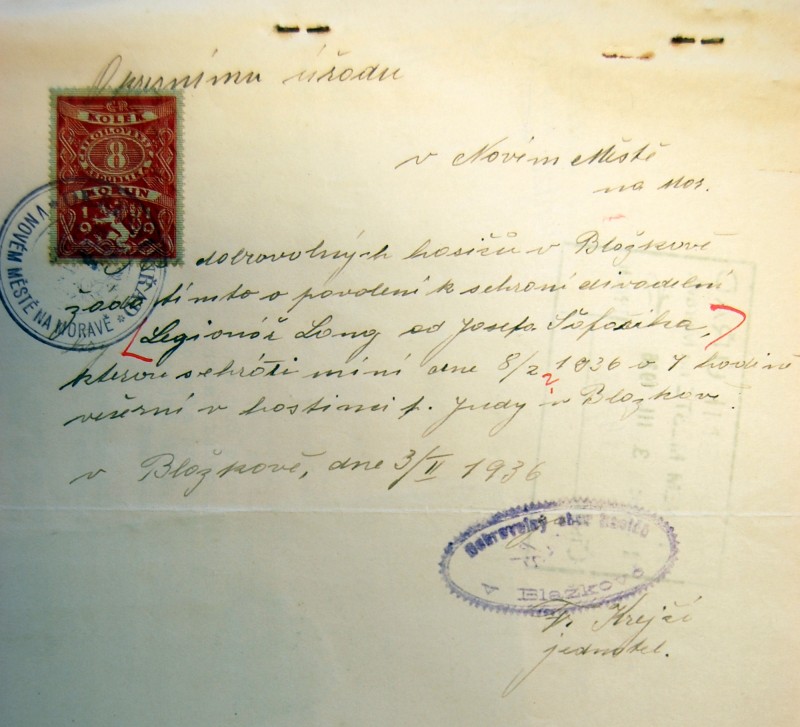 úřadu
v Novém Městě
na Mor.
KOLEK
8
KORUN
V NOVÉM MĚSTĚ NA MORAVĚ
dobrovolných hasičů v Blažkově
žádá tímto o povolení k sehrání divadelní
Legionář Long od Josefa Šafaříka,
kterou sehráti míní dne 8/2 1936 o 7 hodině
2
večerní v hostinci p. Judy v Blažkově.
v Blažkově, dne 3/II 1936
Dobrovolný sbor hasičů
v Blažkově
Fr. Krejčí
jednatel.